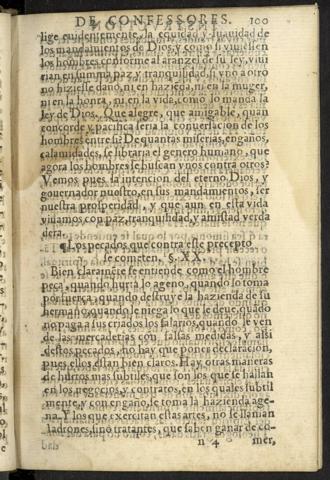 DE CONFESSORES. 100
lige euidentemente, la equidad y suauidad de
los mandamientos de Dios, y como si viuiessen
los hombres conforme al aranzel de su ley, viui
rian en summa paz, y tranquilidad, si vno a otro
no hiziesse daño, ni en hazieda, ni en la muger,
ni en la honra, ni en la vida, como lo manda la
ley de Dios. Que alegre, que amigable, quan
concorde y pacifica seria la conuersacion de los
hombres entre si? De quantas miserias, engaños,
calamidades, se libraria el genero humano, que
agora los hombres se buscan vnos contra otros?
Vemos pues, la intencion del eterno Dios, y
gouernador nuestro, en sus mandamientos, ser
nuestra prosperidad, y que aun en esta vida
viuamos con paz, tranquilidad, y amistad verda
dera.
¶ Los pecados que contra este precepto
se cometen. §. XX.
Bien claramẽte se entiende como el hombre
peca, quando hurta lo ageno, quando lo toma
por fuerça, quando destruye la hazienda de su
hermano, quando le niega lo que le deue, quãdo
no paga a sus criados los salarios, quando le ven
de las mercaderias con falsas medidas, y assi
destos pecados, no hay que poner declaracion,
pues ellos estan bien claros. Hay otras maneras
de hurtos mas subtiles, que son los que se hallan
en los negocios, y contratos, en los quales subtil
mente, y con engaño, se toma la hazienda age
na. Y los que exercitan estas artes, no se llaman
ladrones, sino tratantes, que saben ganar de co-
n 4 mer,